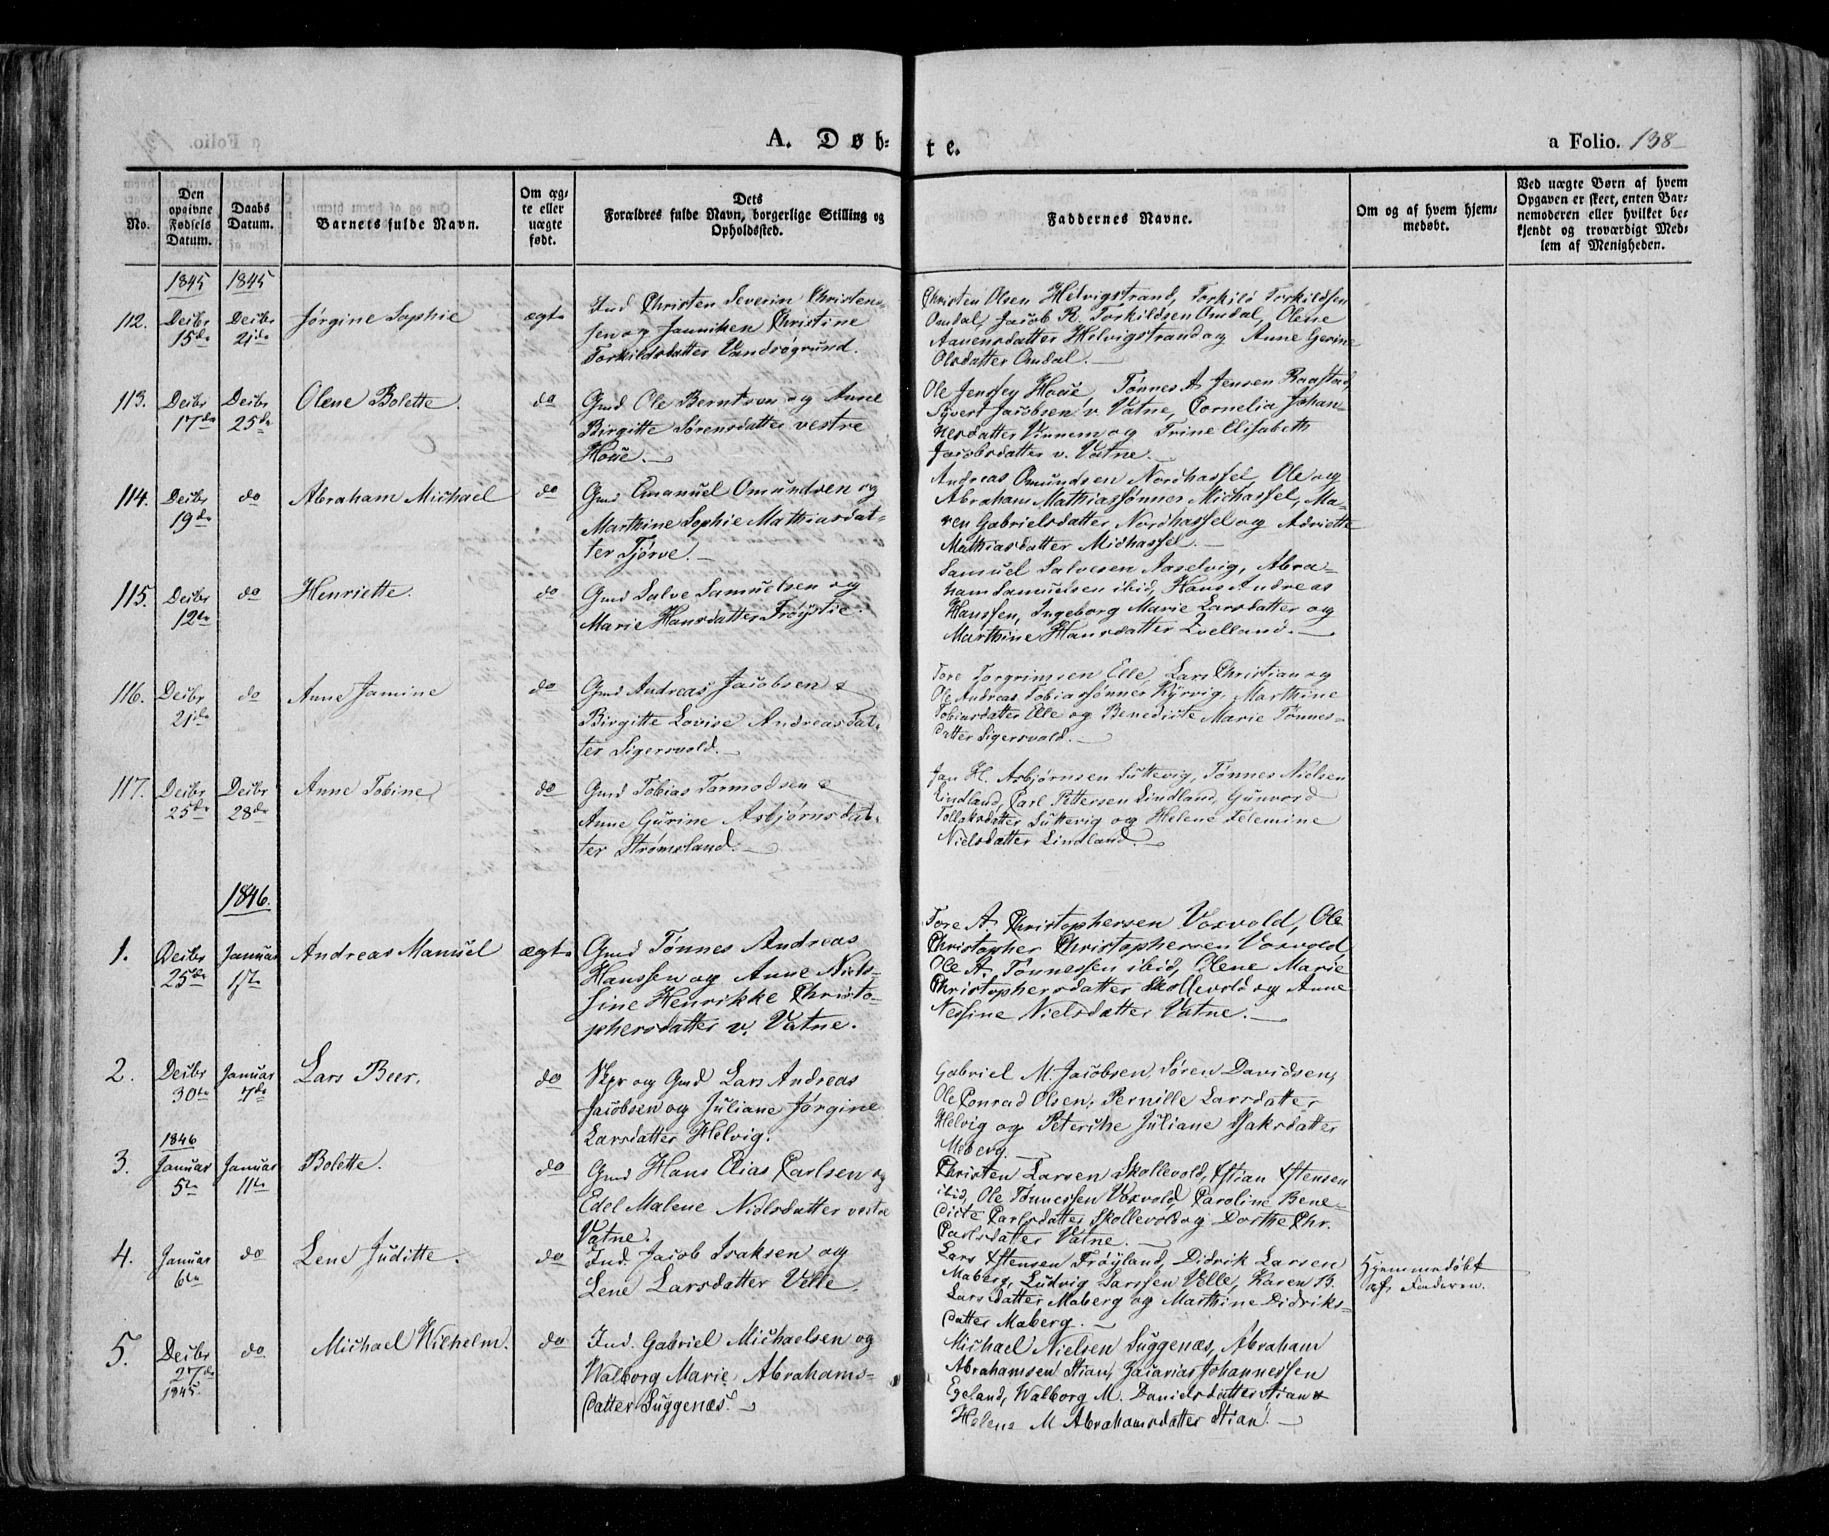 A. Døb-
te.
a Folio. 138
No.
Den
opgivne
Fødsels
Datum.
Daabs
Datum.
Barnets fulde Navn.
Om æg-
te eller
uægte
født.
Dets
Forældres fulde Navn, borgerlige Stilling og
Opholdssted.
Faddernes Navne.
Om og af hvem hjem-
medøbt.
Ved uægte Børn af hvem
Opgaven er skeet, enten Bar-
nemoderen eller hvilket be-
kjendt og troværdigt Med-
lem af Menigheden.
1845 1845
112. Decbr 15de Decbr 21de Jørgine Sophie ægte
Ind Christen Severin Christen-
sen og Janniken Christine
Torkildsdatter Vandrøgrund.
Christen Olsen Helvigstrand, Torkild Torkildsen
Omdal, Jacob R. Torkildsen Omdal, Olene
Aanensdatter Helvigstrand og Anne Gerine
Olsdatter Omdal.
113. Decbr 17de Decbr 25de Olene Bolette do
Gmd Ole Berntsen og Anne
Birgitte Sørensdatter vestre
Houe.
Ole Jensen Houe, Tønnes A. Jensen Raastad,
Syvert Jacobsen v. Vatne, Cornelia Johan-
nesdatter Vinnem og Trine Elisabeth
Jacobsdatter v. Vatne.
114. Decbr 19de do Abraham Michael do
Gmd Emanuel Omundsen og
Marthine Sophie Mathiasdat-
ter Tjørve.
Andreas Omundsen Nordhassel, Ole og
Abraham Mathiassønner Midhassel, Ma-
ren Gabrielsdatter Nordhassel og Adriette
Mathiasdatter Midhassel.
115. Decbr 12te do Henriette. do
Gmd Salve Samuelsen og
Marie Hansdatter Frøÿstie.
Samuel Salvesen Naselvig, Abra-
ham Samuelsen ibid, Hans Andreas
Hanssen, Ingeborg Marie Larsdatter og
Marthine Hansdatter Qvelland.
116. Decbr 21de do Anne Jamine do
Gmd Andreas Jacobsen &
Birgitte Lovise Andreasdat-
ter Sigersvold.
Tore Torgrimsen Elle, Lars Christian og
Ole Andreas Tobiassønner Kÿrvig, Marthine
Tobiasdatter Elle og Benedicte Marie Tønnes-
datter Sigersvold.
117. Decbr 25de Decbr 28de Anne Tobine do
Gmd Tobias Tarmodsen &
Anne Gurine Asbjørnsdat-
ter Strømsland.
Jan H. Asbjørnsen Luttevig, Tønnes Nielsen
Lindland, Carl Pettersen Lindland, Gunvord
Tollaksdatter Luttevig og Helene Telemine
Nielsdatter Lindland.
1846.
1. Decbr 25de Januar 1ste Andreas Manuel ægte
Gmd Tønnes Andreas
Hanssen og Anne Niels-
sine Henrikke Christo-
phersdatter v. Vatne.
Tore A. Christophersen Voxvold, Ole
Christopher Christophersen Voxvold,
Ole A. Tønnessen ibid, Olene Marie
Christophersdatter Skollevold og Anne
Nessine Nielsdatter Vatne.
2. Decbr 30te Januar 7de Lars Beer. do
Skpr og Gmd Lars Andreas
Jacobsen og Juliane Jørgine
Larsdatter Helvig.
Gabriel M. Jacobsen, Søren Davidsen,
Ole Conrad Olsen, Pernille Larsdatter
Helvig og Peterike Juliane Isaksdatter
Meberg.
3. 1846 Januar 5te Januar 11te Bolette. do
Gmd Hans Elias Carlsen og
Edel Malene Nielsdatter vestre
Vatne.
Christen Larsen Skollevold, Estian Estensen
ibid, Ole Tønnessen Voxvold, Caroline Bene-
dicte Carlsdatter Skollevold og Dorthe Chr.
Carlsdatter Vatne.
4. Januar 6te do Lene Juditte. do
Ind. Jacob Isaksen og
Lene Larsdatter Velle.
Lars Estensen Frøyland, Didrik Larsen
Maberg, Ludvig Larssen Velle, Karen B.
Larsdatter Maberg og Marthine Didriks-
datter Maberg.
Hjemmedøbt
af Faderen.
5. Decbr 27de 1845. do Michael Wilhelm. do
Ind. Gabriel Michaelsen og
Walborg Marie Abrahams-
datter Luggenæs.
Michael Nielsen Luggenæs, Abraham
Abrahamsen Stian, Zacarias Johannessen
Egeland, Walborg M. Danielsdatter Stian &
Helene M Abrahamsdatter Stian.